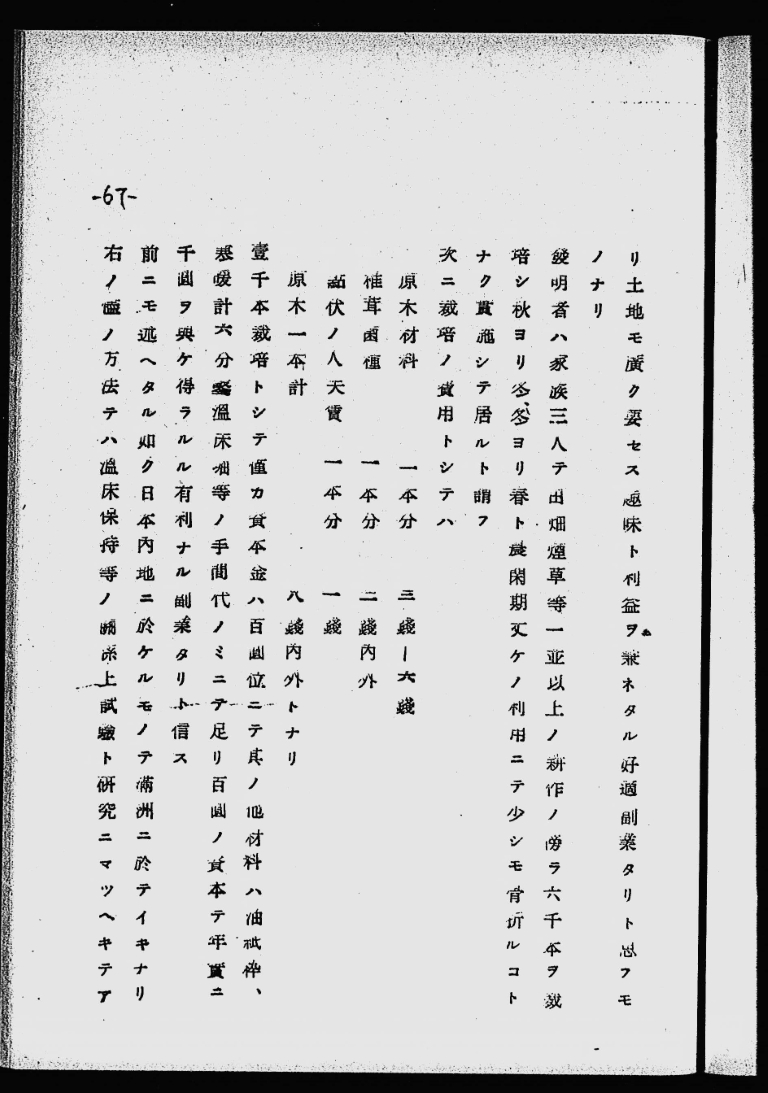 -67-
リ土地モ廣ク要セス趣味ト利益ヲ兼ネタル好適副業タリト思フモ
ノナリ
發明者ハ家族三人テ田畑煙草等一並以上ノ耕作ノ傍ラ六千本ヲ栽
培シ秋ヨリ冬、冬ヨリ春ト農閑期丈ケノ利用ニテ少シモ骨折ルコト
ナク實施シテ居ルト謂フ
次ニ栽培ノ費用トシテハ
原木材料 一本分 三錢ー六錢
椎茸菌種 一本分 二錢內外
伏ノ人夫賃 一本分 一錢
原木一本計 八錢內外トナリ
壹千本栽培トシテ僅カ資本金ハ百圓位ニテ其ノ他材料ハ油紙枠、
寒暖計六分 溫床堀等ノ手間代ノミニテ足リ百圓ノ資本テ年實ニ
千圓ヲ與ケ得ラルル有利ナル副業タリト信ス
前ニモ述ヘタル如ク日本內地ニ於ケルモノテ滿洲ニ於テイキナリ
右ノ ノ方法テハ溫床保持等ノ關係上試驗ト研究ニマツヘキテア